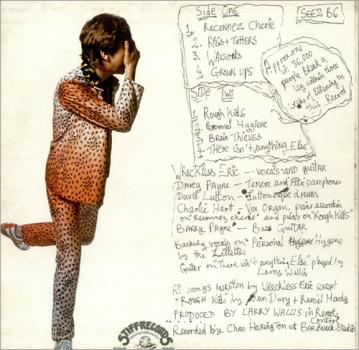 Side One
SEEZ B6
1. Reconnez Cherie
2. Rags + Tatters
3. Waxworks
4. Grown ups
Side Two
1. Rough Kids
2. Personal Hygiene
3. Brain Thieves
4. There isn't anything Else
Approx one
in 36,000
people break a
leg within three
weeks of listening to
this Record
Wreckless Eric --- vocals and guitar
Davey Payne - Tenor and Alto saxophones
David Lutton -
Charlie Hart - Vox Organ, piano accordian
on "Reconnez cherie" and piano on "Rough Kids"
Barry Payne - Bass Guitar
Backing vocals on "Personal Hygiene" Hygiene
by the
Guitar on "There isn't anything Else" played by
Larry Wallis
All songs written by Wreckless Eric except
"Rough Kids" by Ian Dury + Russel Hardy
PRODUCED BY LARRY WALLIS in Remote
Control
Recorded by: Chao Herington at Barbwick Studios
STIFF RECORDS